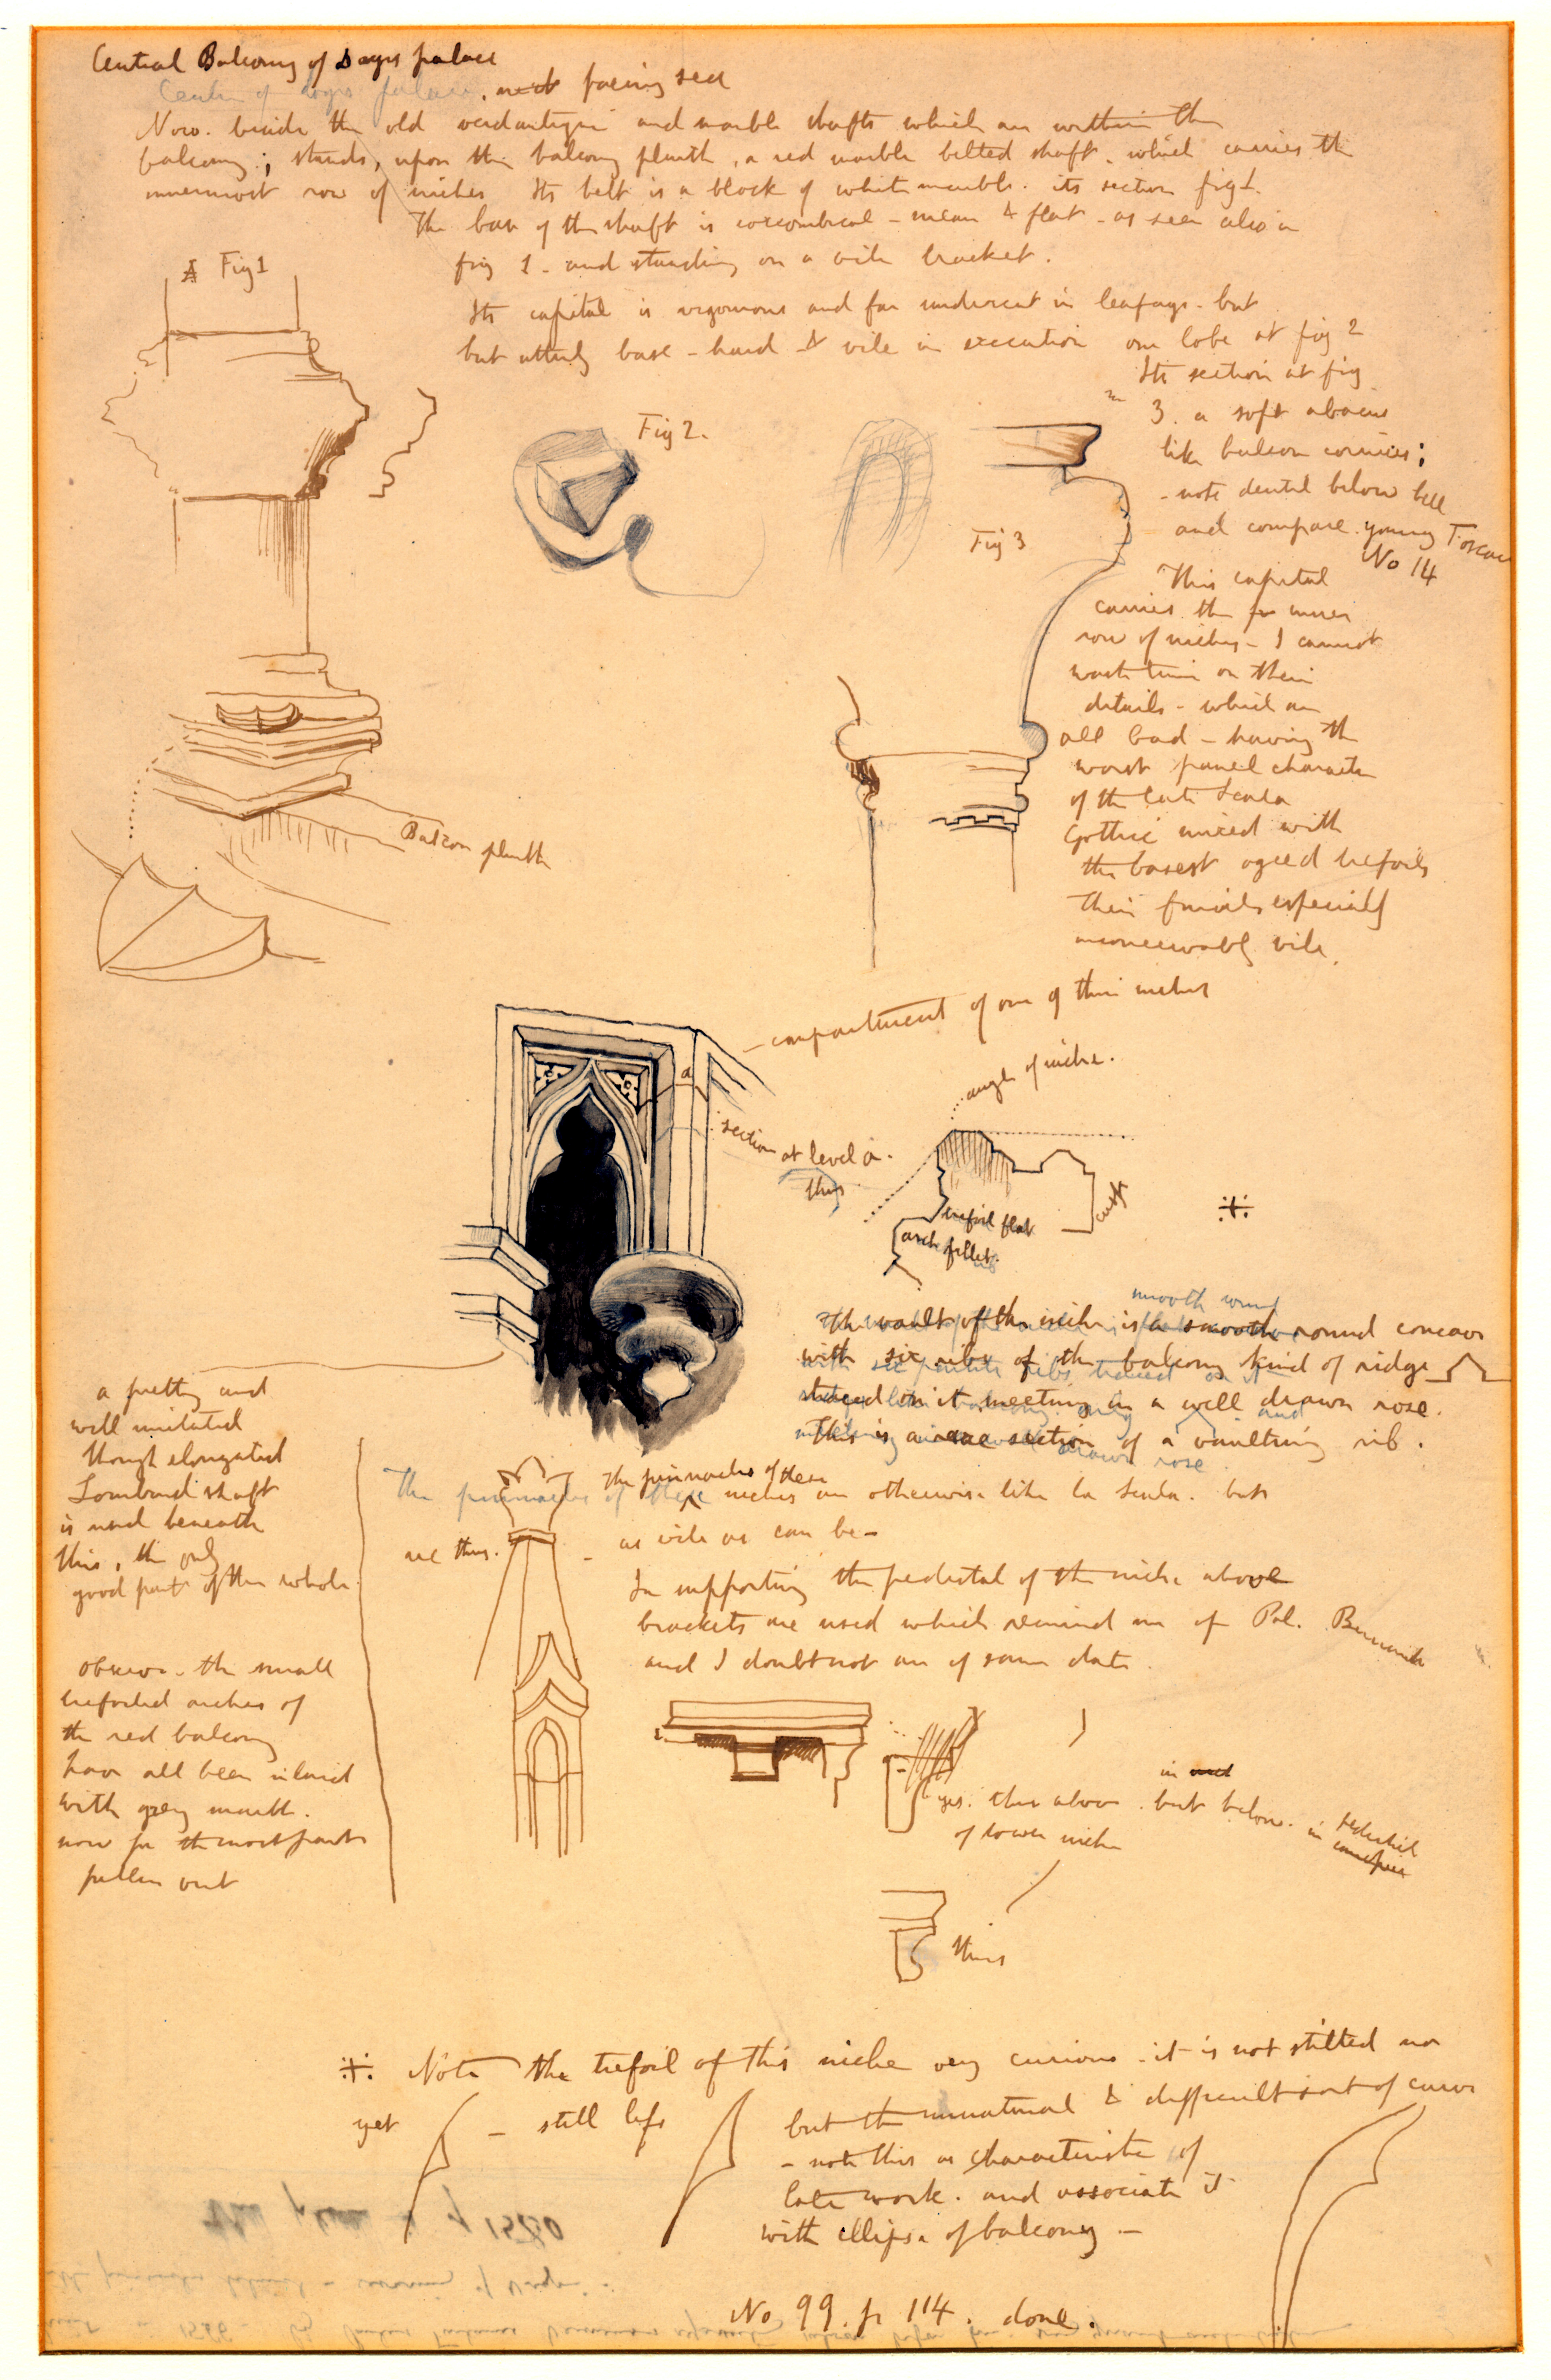 Central Balcony of Doges palace
Center of doges palace. facing sea
Now. beside the old verdantique and marble shafts which are within the
balcony; stands, upon the balcony plinth, a red marble belted shaft. which carries the
innermost row of niches Its belt is a block of white marble. its section fig 1.
The base of the shaft is coxcombical - mean & flat - as seen also in
fig 1 - and standing on a vile bracket.
A Fig 1
Its capital is vigorous and far undercut in leafage. but
but utterly base - hard & vile in execution one lobe at fig 2
Its section at fig
3. a soft abacus
like balcon cornices;
- note dentil below bell
and compare young Foscari
No 14
Fig 2.
Fig 3
This capital
carries the inner
row of niches - I cannot
waste time on their
details - which are
all bad - having the
worst panel character
of the late Scala
Gothic mixed with
the basest ogeed trefoils
their finials especially
inconceivably vile.
Balcon plinth
- compartment of one of their niches
angle of niche.
a
section at level a.
thus
trefoil flat
arch fillet.
cusp
⁜
smooth round
The vault of the niche is a smooth round concave
with six ribs of the balcony kind of ridge
traced on it meeting in a well drawn rose.
This is a rare section of a vaulting rib.
a pretty and
well imitated
though elongated
Lombard shaft
is used beneath
this, the only
good part of the whole.
The pinnacles of these niches are otherwise like la Scala. but
are thus. - as vile as can be -
In supporting the pedestal of the niche above
brackets are used which remind me of Pal. Bernardo
and I doubt not are of same date.
observe - the small
trefoiled arches of
the red balcony
have all been inlaid
with grey marble.
now for the most part
fallen out
yes. thus above. but below. in pedestal
of lower niche
thus
⁜ Note the trefoil of this niche very curious - it is not stilted nor
yet - still less but the unnatural & difficult sort of curve
- note this as characteristic of
late work. and associate it
with ellipse of balcony -
No 99. p 114. done.